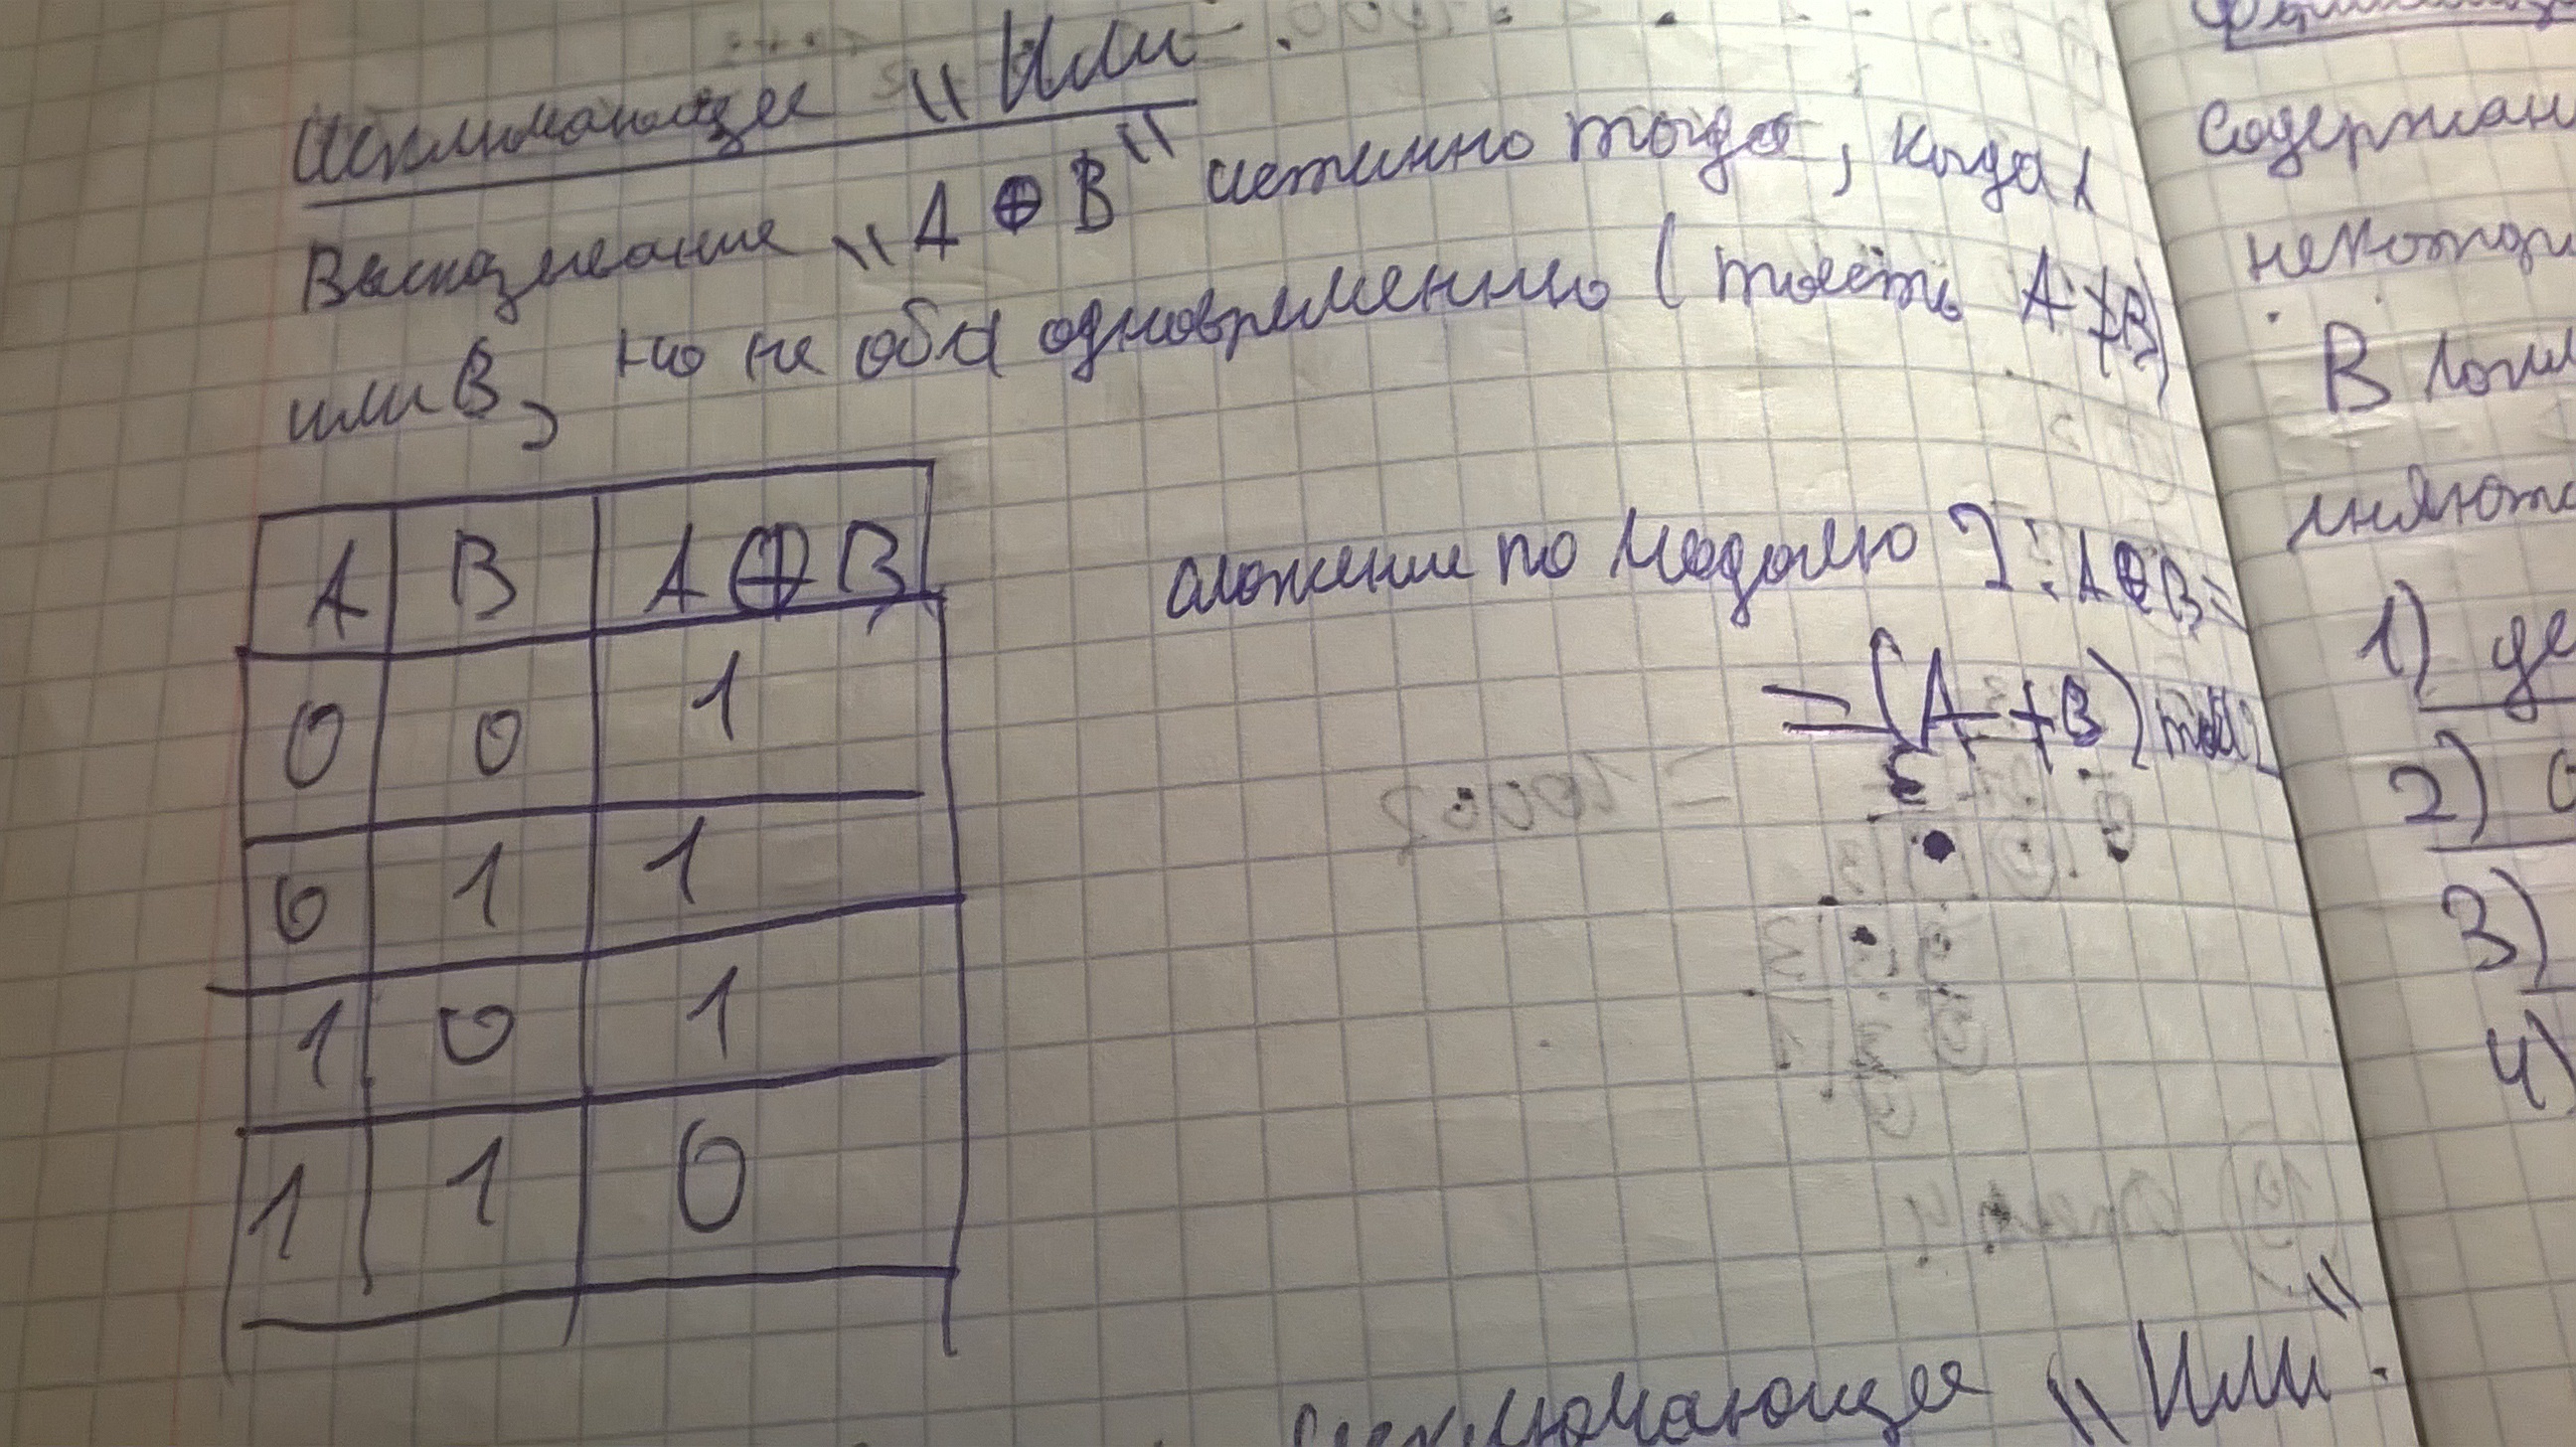 Исключающее "Или
Высказывание "A ⊕ B" истинно тогда, когда A
или B, но не оба одновременно (тоесть A ≠ B)
A B A ⊕ B
0 0 1
0 1 1
1 0 1
1 1 0
сложение по модолю 2: A ⊕ B =
= (A + B) mod 2
исключающее "Или".
содержан
некотор
В логи
лняютс
1) де
2)
3)
4)